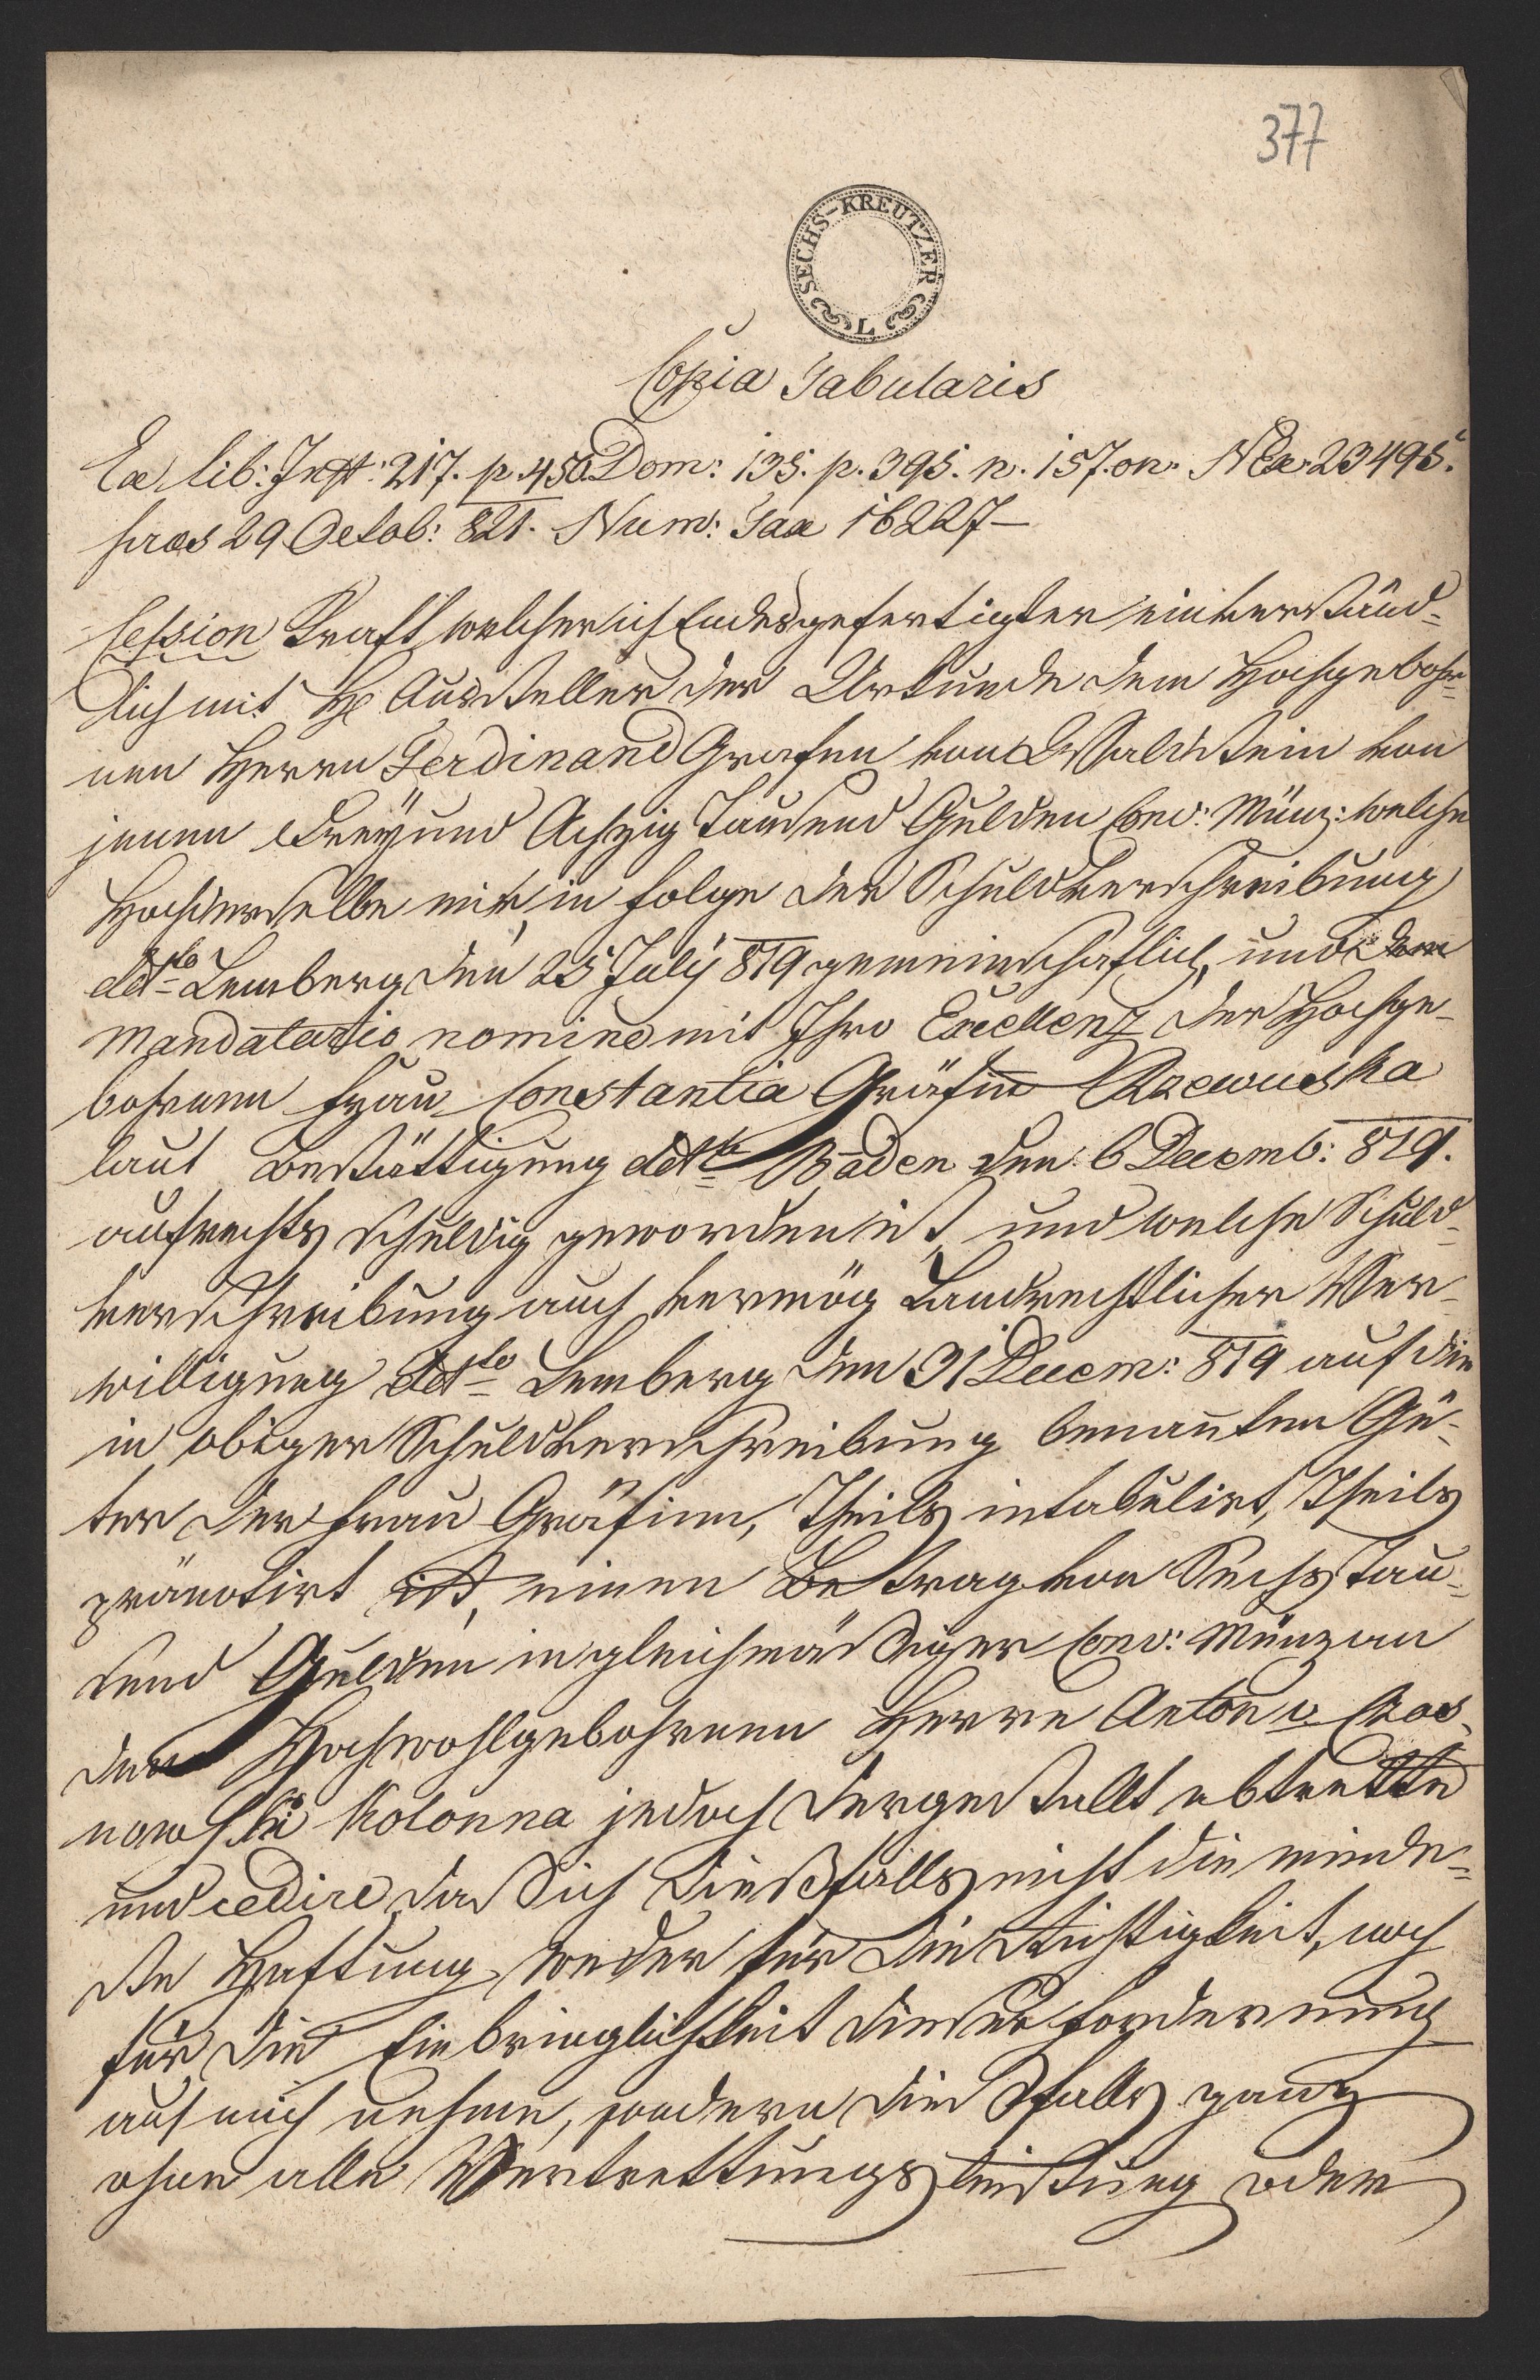 377
SECHS-KREUTZER
L
Copia Tabularis
Ex lib: Inst: 217. p. 450. Dom: 135. p. 395. n. 157. on. NEx. 23495.
praes 29 Octob: 821. Num: Tax 16227
Cession Kraft welcher ich Endesgefertigter einverständ-
lich mit H Aussteller der Urkunde dem Hochgebohr-
nen Herrn Ferdinand Grafen von Waldstein von
jenen Dreyund Achzig Tausend Gulden Conv: Münz: welche
Hochderselbe mir, in folge der Schuldverschreibung
ddto Lemberg den 25 July 819 gemeinschaftlich, und
Mandatario nomine mit Ihro Excellenz der Hochge-
bohrenen Frau Constantia Gräfin Rzewuska
laut Bestättigung ddto Baden den 6 Decemb: 819.
aufrechts schuldig geworden ist, und welche Schuld-
verschreibung auch vermög Landrechtlicher Ver-
willigung ddto Lemberg den 31 Decem: 819 auf die
in obiger Schuldverschreibung benannten Gü-
ter der Frau Gräfinn, Theils intabulirt, Theils
pränotirt ist, einen Betrag von Sechs Tau-
send Gulden in gleichmässiger Conv: Münz an
den Hochwohlgebohrenen Herrn Anton v.
Kolonna jedoch dergestallt abtrette
und cedire, dass ich diessfalls nicht die minde-
ste Haftung weder für die Richtigkeit, noch
für die Einbringlichkeit dieser Forderung
auf mich nehme, sondern diessfalls ganz
ohne alle Vertrettungsleistung oder